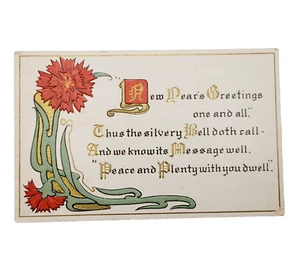 "New Year's Greetings
one and all,"
Thus the silvery Bell doth call -
And we know its Message well,
"Peace and Plenty with you dwell".